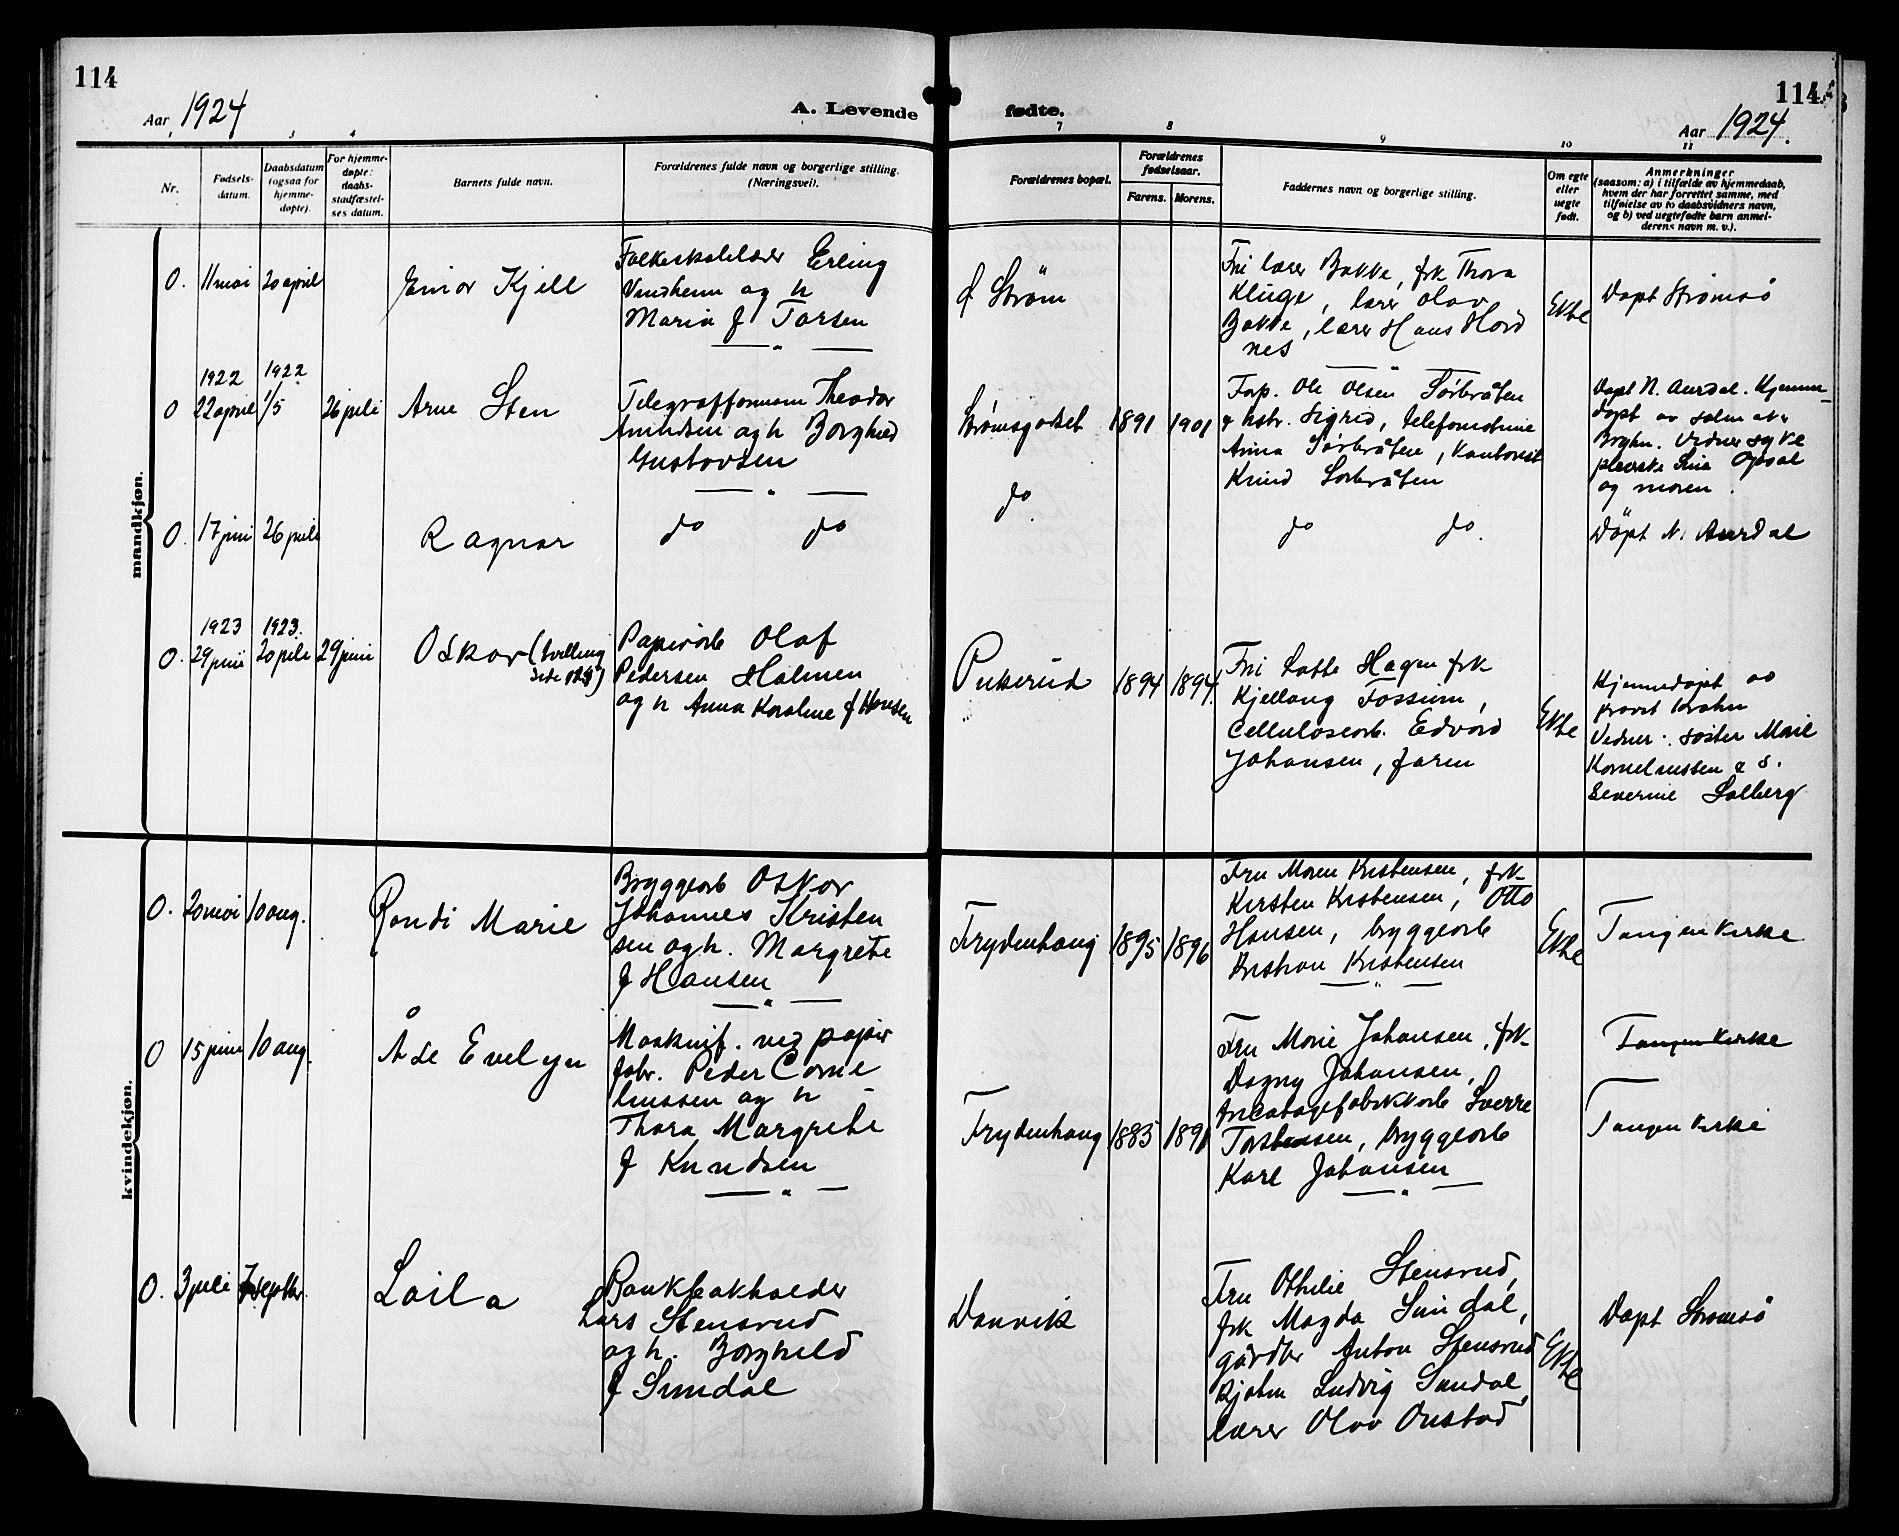 114
Aar 1924
A. Levende
Nr.
Fødsels-
datum.
3
Daabsdatum
(ogsaa for
hjemme-
døpte).
4
For hjemme-
døpte:
daabs-
stadfæstel-
ses datum.
Barnets fulde navn.
Forældrenes fulde navn og borgerlige stilling.
(Næringsvei).
mandkjøn.
0. 11 mai 20 april
Einar Kjell
Folkeskolelærer Erling
Vindheim og h
Maria f Torsen
1922 1922
0 22 april 1/5 26 juli
Arne Sten
Telegrafformann Theodor
Amundsen og h Borghild
Gustavsen
0. 17 juni 26 juli
Ragnar
do do
1923 1923.
0. 29 juni 20 juli 29 juni
Oskar (tvilling
Papirarb Olaf
Pedersen Holmen
og h Anna Karoline f Hansen
kvindekjøn.
0. 20 mai 10 aug.
Randi Marie
Bryggearb Oskar
Johannes Kristen
sen og h. Margrete
f Hansen
0 15 juni 10 aug.
Åse Evelyn
Maskinf. ved papir
fabr. Peder Corne
liussen og h
Thora Margrete
f Knudsen
0. 3 juli 7 septbr.
Laila
Bankbokholder
Lars Stensrud
og h. Borghild
f Sundal
114
fødte.
Aar 1924.
7
Forældrenes bopæl.
8
Forældrenes
fødselsaar.
Farens. Morens.
9
Faddernes navn og borgerlige stilling.
10
Om egte
eller
uegte
født.
11
Anmerkninger
(saasom: a) i tilfælde av hjemmedaab,
hvem der har forrettet samme, med
tilføielse av to daabsvidners navn,
og b) ved uegtefødte barn anmel-
derens navn m. v.).
Strøm
Fru lærer Bakke, frk Thora
Kluge, lærer Olav
Bakke, lærer Hans Hord
nes
Ekte
Døpt Strømsö
Strømsgodset 1891 1901
Forp. Ole Olsen Sørbråten
& hstr. Sigrid, telefonistinne
Anna Sørbråten, Kontorist
Knud Sørbråten
Døpt N. Aurdal. Hjemme-
døpt av
Vidner syke
pleierske
og moren.
do
do do.
Döpt N. Aurdal
Pukerud 1894 1894.
Fru Lotte Hagen frk
Kjellaug Fossum,
Cellulosearb. Edvard
Johansen, faren
Ekte
Hjemmedøpt av
Vidner: søster Marie
Korneliussen & s.
Severine Solberg
Frydenhaug 1895 1896
Fru Maren Kristensen, frk
Kirsten Kristensen, Otto
Hansen, bryggearb
Kristian Kristensen
Ekte
Tangen kirke
Frydenhaug 1885 1891
Fru Marie Johansen, frk
Dagny Johansen,
Sverre
Torstensen, bryggearb
Karl Johansen
Tangen kirke
Tangen kirke
Danvik
Fru Othilie Stensrud,
frk Magda Sundal,
gårdbr Anton Stensrud
kjøbm Ludvig Sundal,
lærer Olav Onstad
Ekte
Døpt Strømsö